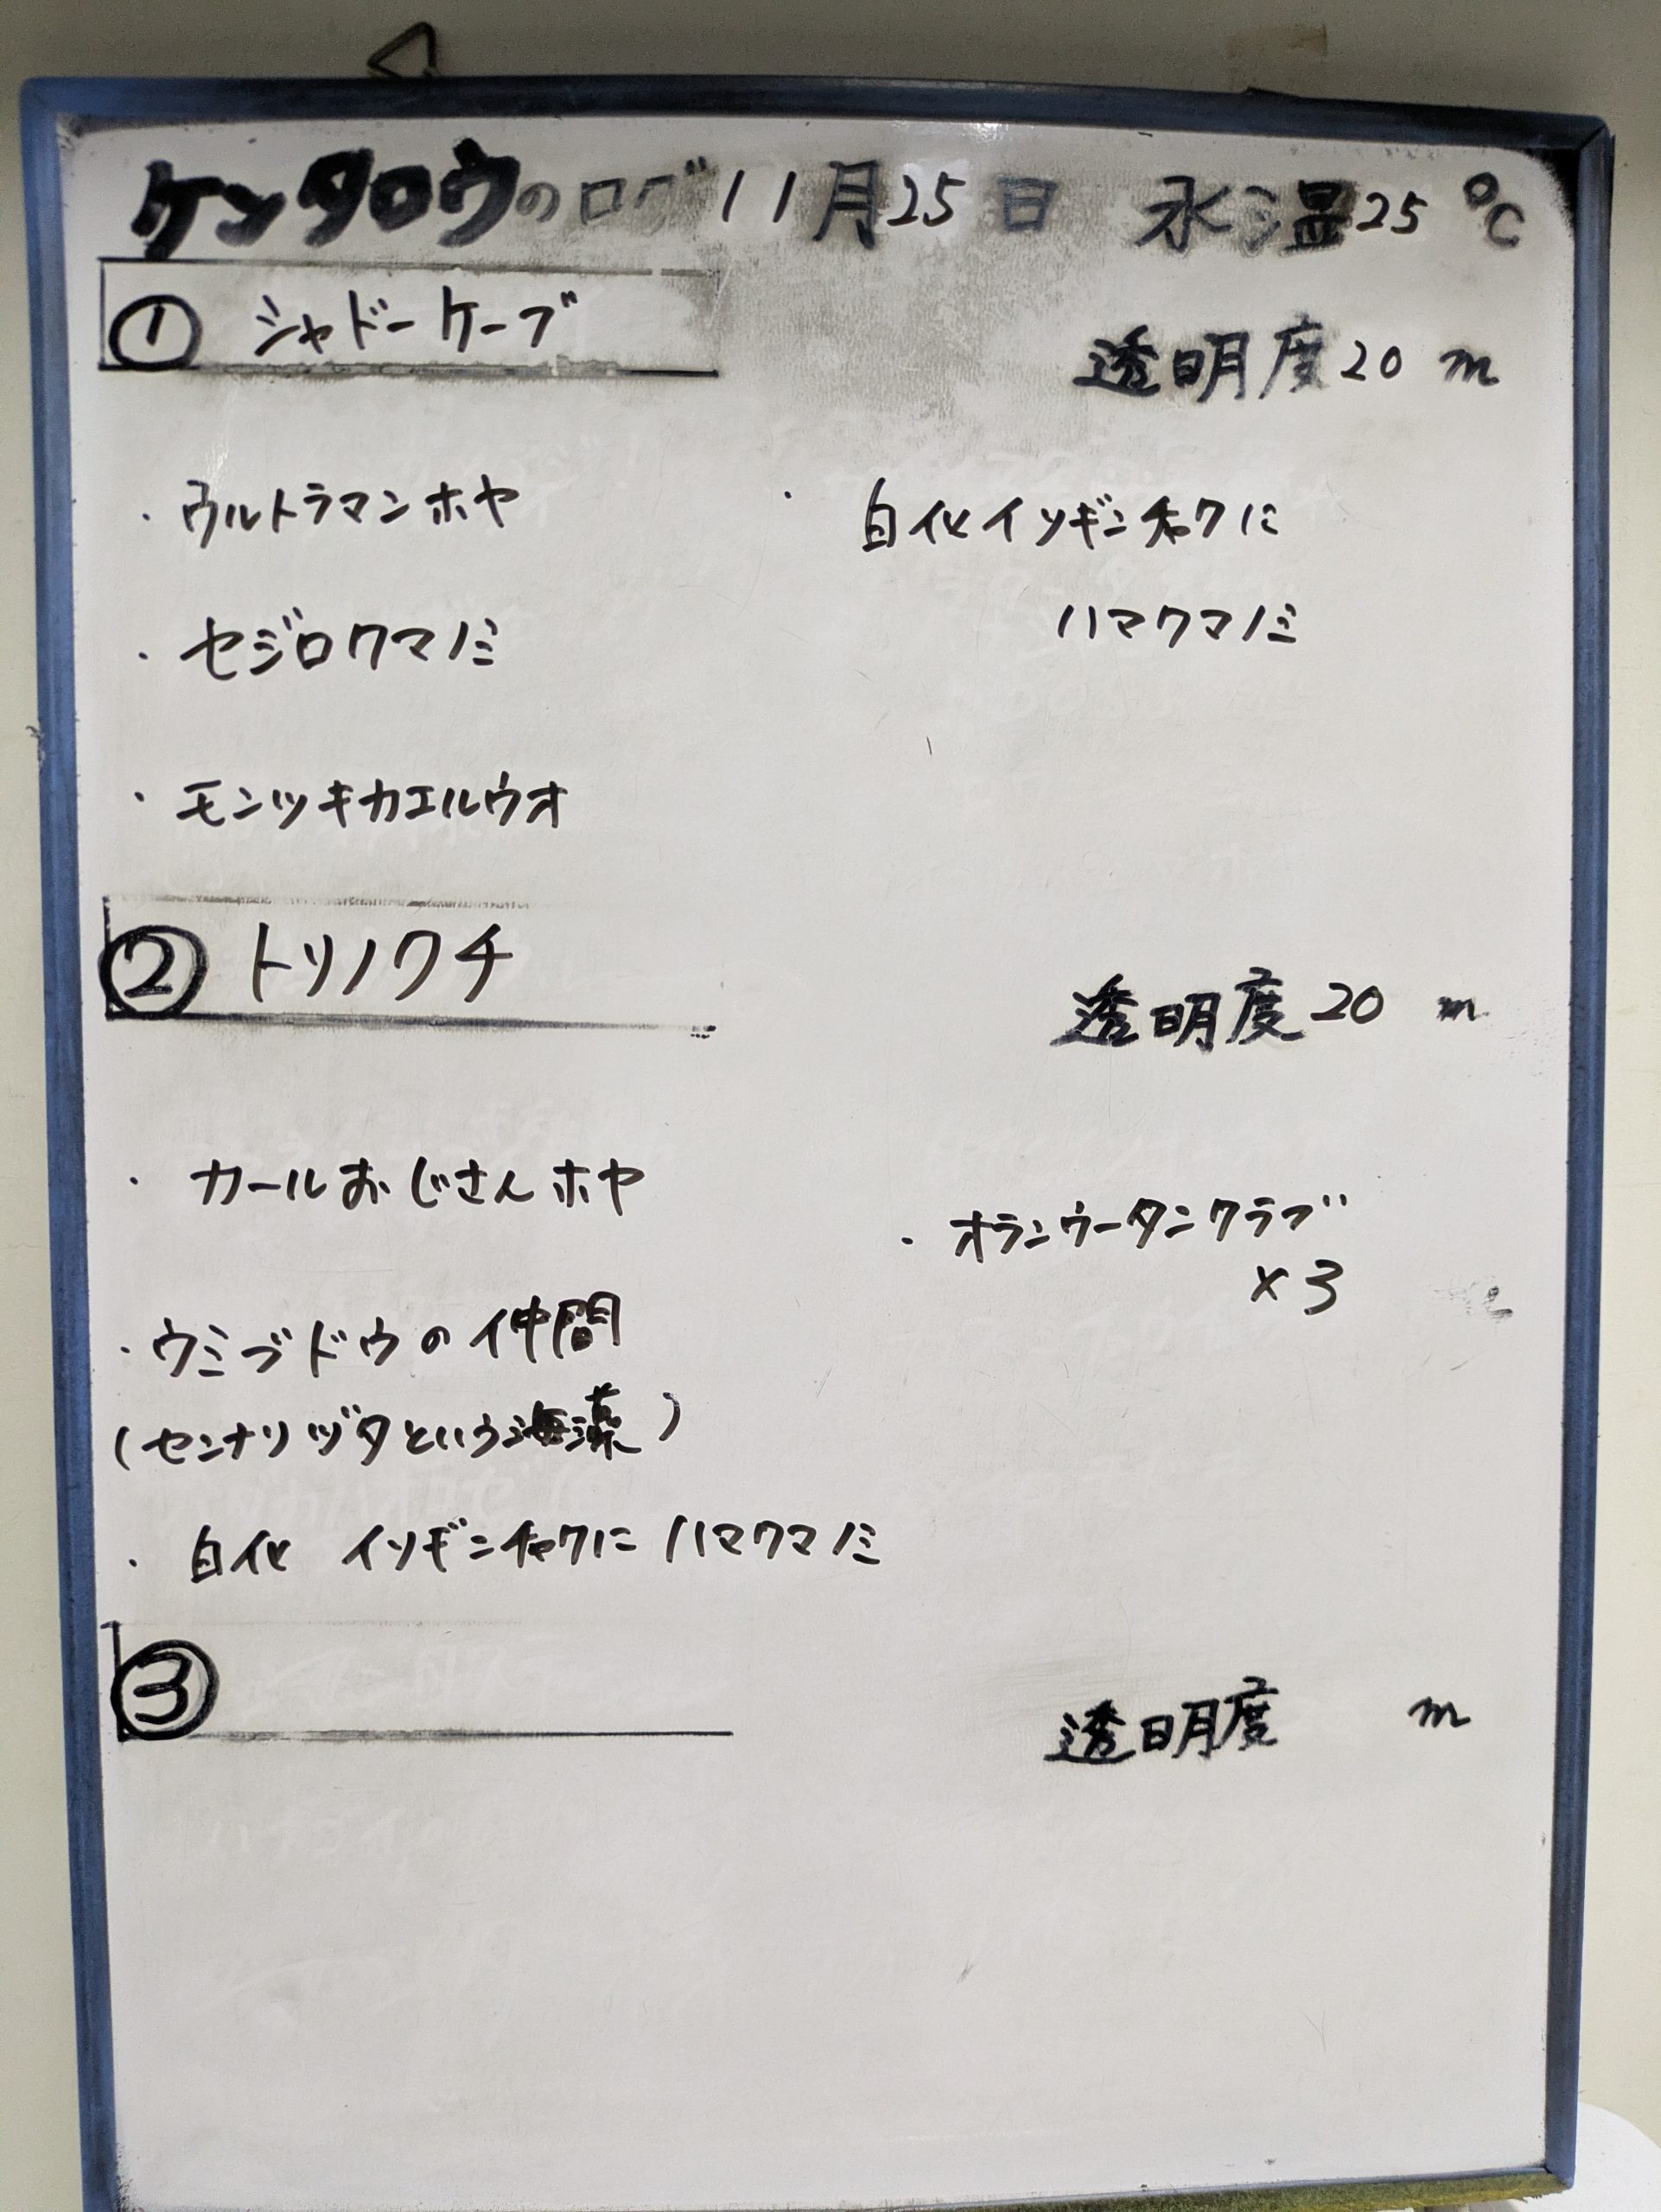 ケンタロウのログ 11月25日 水温25℃
① シャドーケーブ
透明度20 m
・ウルトラマンホヤ
・セジロクマノミ
・モンツキカエルウオ
・白化イソギンチャクに
ハマクマノミ
② トリノクチ
透明度20 m
・カールおじさんホヤ
・ウミブドウの仲間
(センナリヅタという海藻)
・白化 イソギンチャクにハマクマノミ
・オランウータンクラブ
×3
③
透明度 m